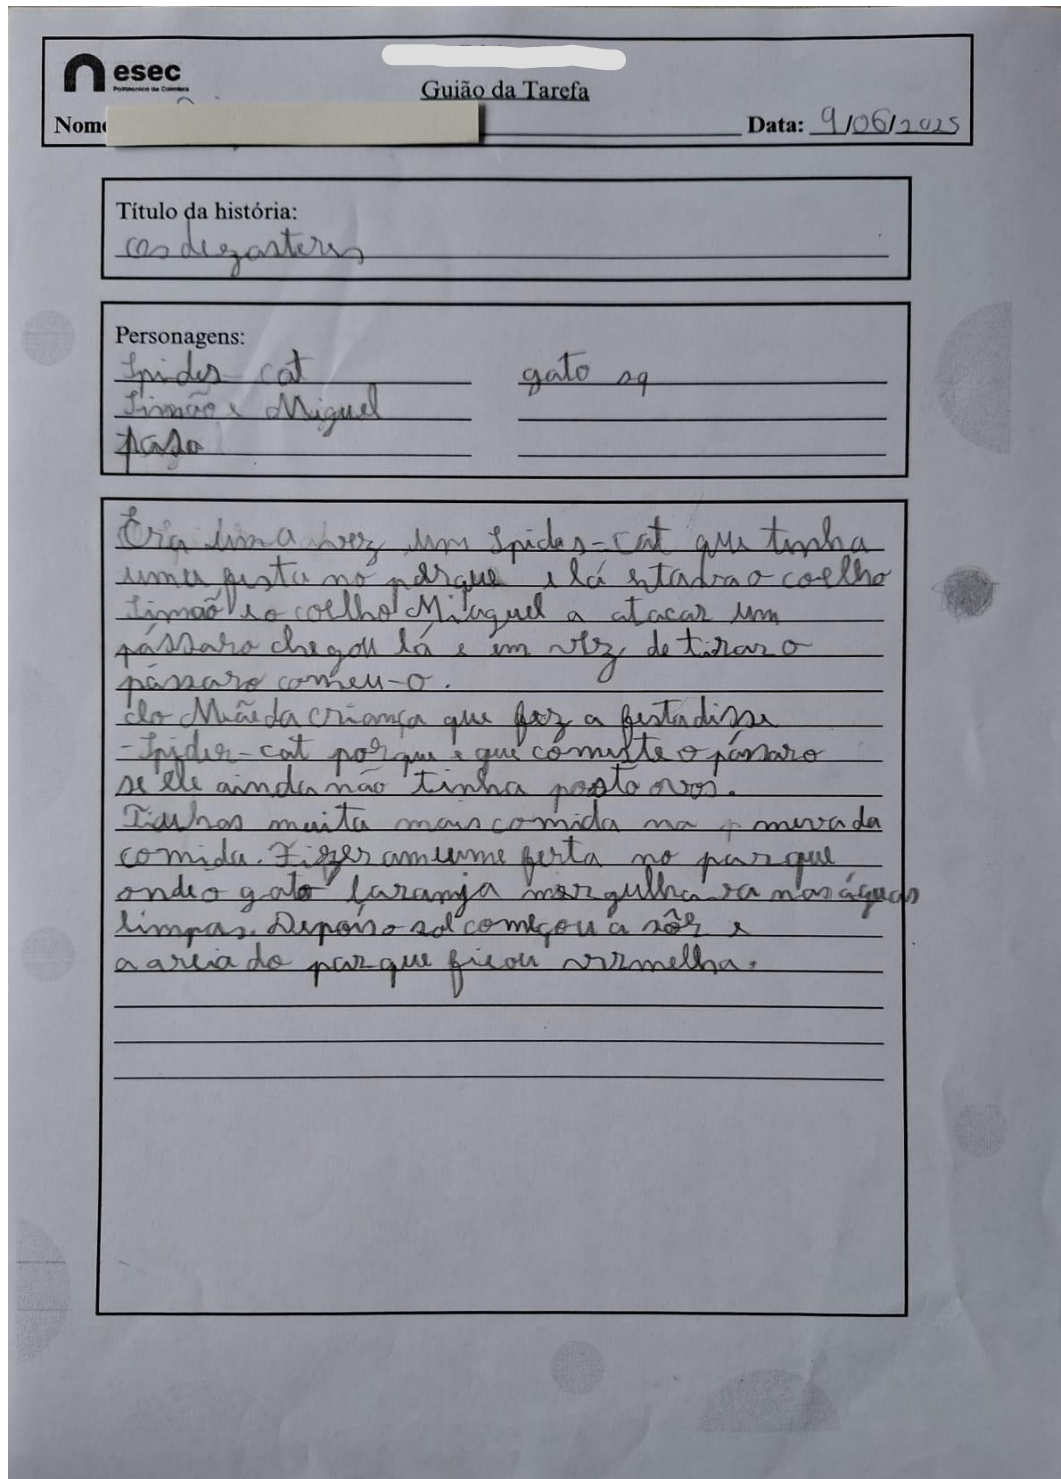 esec
Politécnico de Coimbra
Guião da Tarefa
Nome
Data: 9/06/2025
Título da história:
os dezasteres
Personagens:
Spider-cat
gato
Simão e Miguel
Era uma vez um Spider-cat que tinha
uma festa no parque e lá estava o coelho
Simão e o coelho Miaguel a atacar um
pássaro chegou lá e em vez de tirar o
pássaro comeu-o.
Mãe da criança que fez a festa disse
-Spider-cat porque é que comeste o pássaro
se ele ainda não tinha posto ovos.
muita mais comida na da
comida. Fizeram ume festa no parque
onde o gato laranja mergulhava nas águas
limpas. Depois o sol começou a sôr e
a areia do parque ficou vermelha.